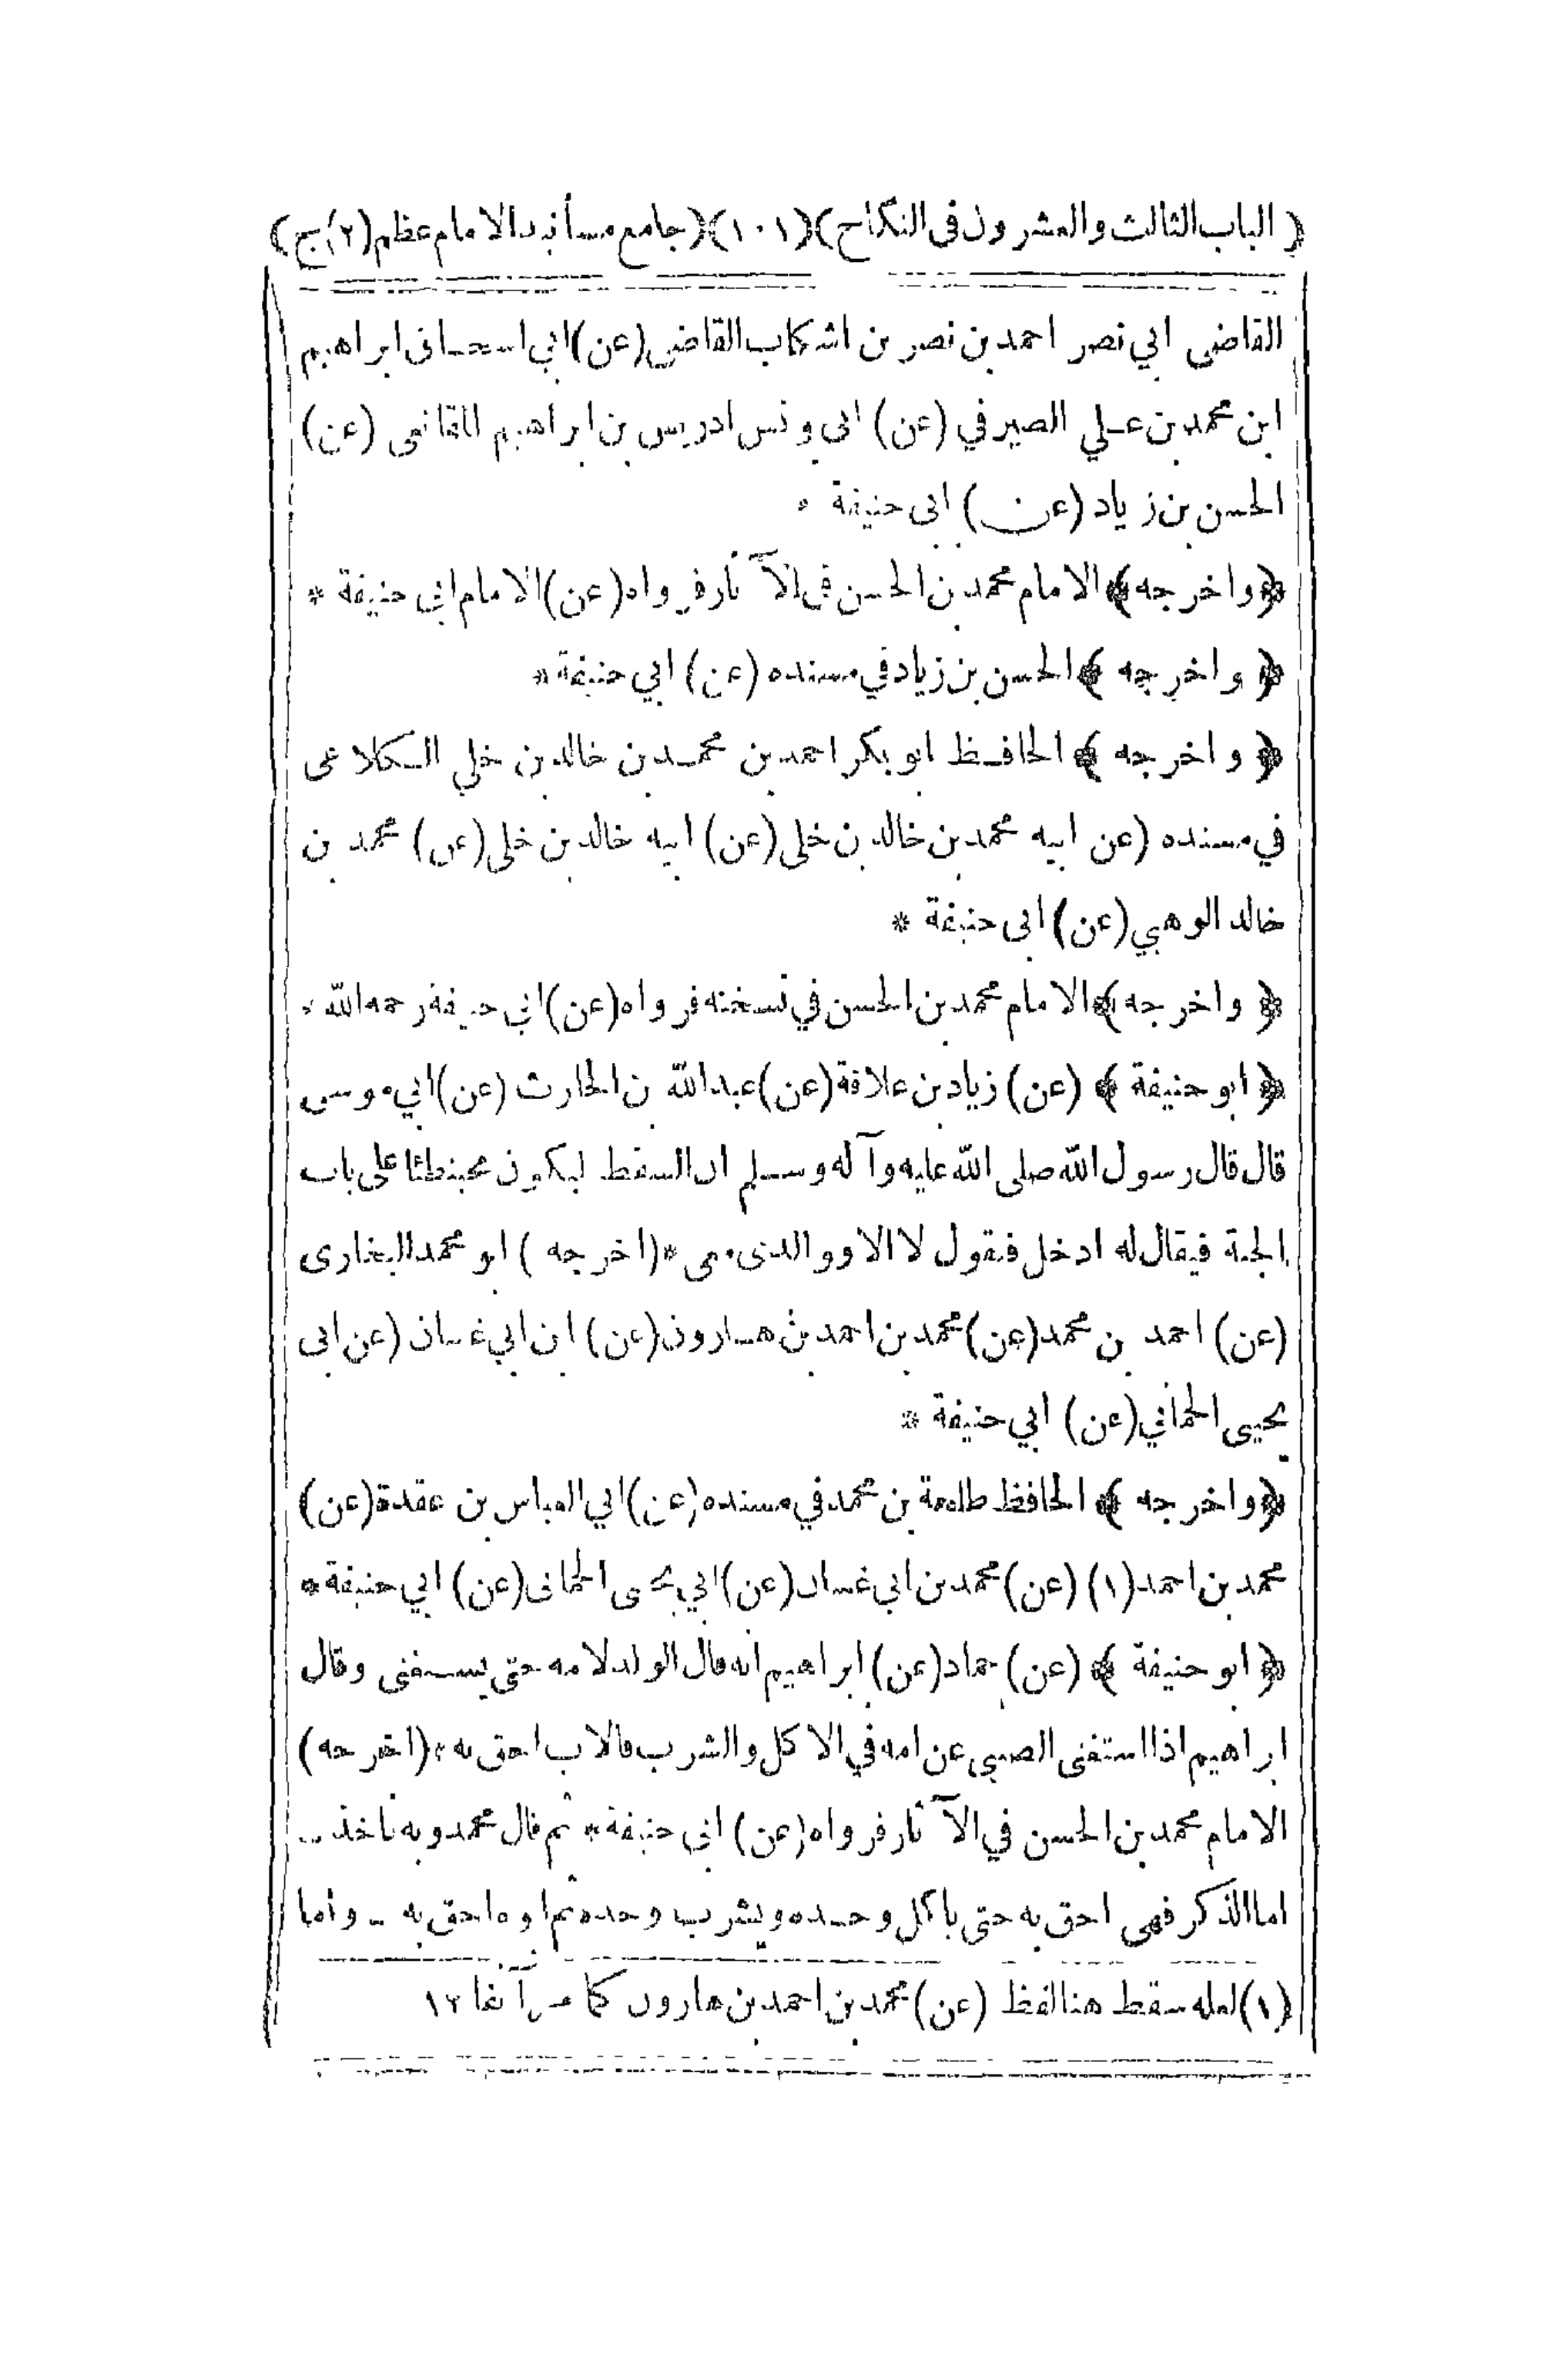 ( الباب الثالث والعشرون في النكاح ) (١٠١) ( جامع مسانيد الامام عظم (٢) ج )
القاضي ابي نصر احمد بن نصر بن اشكاب القاضي (عن) ابي اسحاق ابراهيم
ابن محمد بن علي الصيرفي (عن) ابي يونس ادريس بن ابراهيم المقانعي (عن)
الحسن بن زياد (عن) ابي حنيفة *
﴿واخرجه﴾ الامام محمد بن الحسن في الآثار فرواه (عن) الامام ابي حنيفة *
﴿واخرجه﴾ الحسن بن زياد في مسنده (عن) ابي حنيفة *
﴿واخرجه﴾ الحافظ ابو بكر احمد بن محمد بن خالد بن خلي الكلاعي
في مسنده (عن ابيه محمد بن خالد بن خلي (عن) ابيه خالد بن خلي (عن) محمد بن
خالد الوهبي (عن) ابي حنيفة *
﴿واخرجه﴾ الامام محمد بن الحسن في نسخته فرواه (عن) ابي حنيفة رحمه الله *
﴿ابو حنيفة﴾ (عن) زياد بن علاقة (عن) عبد الله بن الحارث (عن) ابي موسى
قال قال رسول الله صلى الله عليه وآله وسلم ان السقط ليكون محبنطئا على باب
الجنة فيقال له ادخل فيقول لا الا ووالدي معي * (اخرجه) ابو محمد البخاري
(عن) احمد بن محمد (عن) محمد بن احمد بن هارون (عن) ابن ابي غسان (عن ابي
يحيى الحماني (عن) ابي حنيفة *
﴿واخرجه﴾ الحافظ طلحة بن محمد في مسنده (عن) ابي العباس بن عقدة (عن)
محمد بن احمد (١) (عن) محمد بن ابي غسان (عن) ابي يحيى الحماني (عن) ابي حنيفة *
﴿ابو حنيفة﴾ (عن) حماد (عن) ابراهيم انه قال الولد لامه حتى يستغني وقال
ابراهيم اذا استغنى الصبي عن امه في الاكل والشرب فالاب احق به * (اخرجه)
الامام محمد بن الحسن في الآثار فرواه (عن) ابي حنيفة * ثم قال محمد وبه ناخذ ـ
اما الذكر فهي احق به حتى ياكل وحده ويشرب وحده ثم ابوه احق به ـ واما
(١) لعله سقط هنا لفظ (عن) محمد بن احمد بن هارون كما مر آنفا ١٢